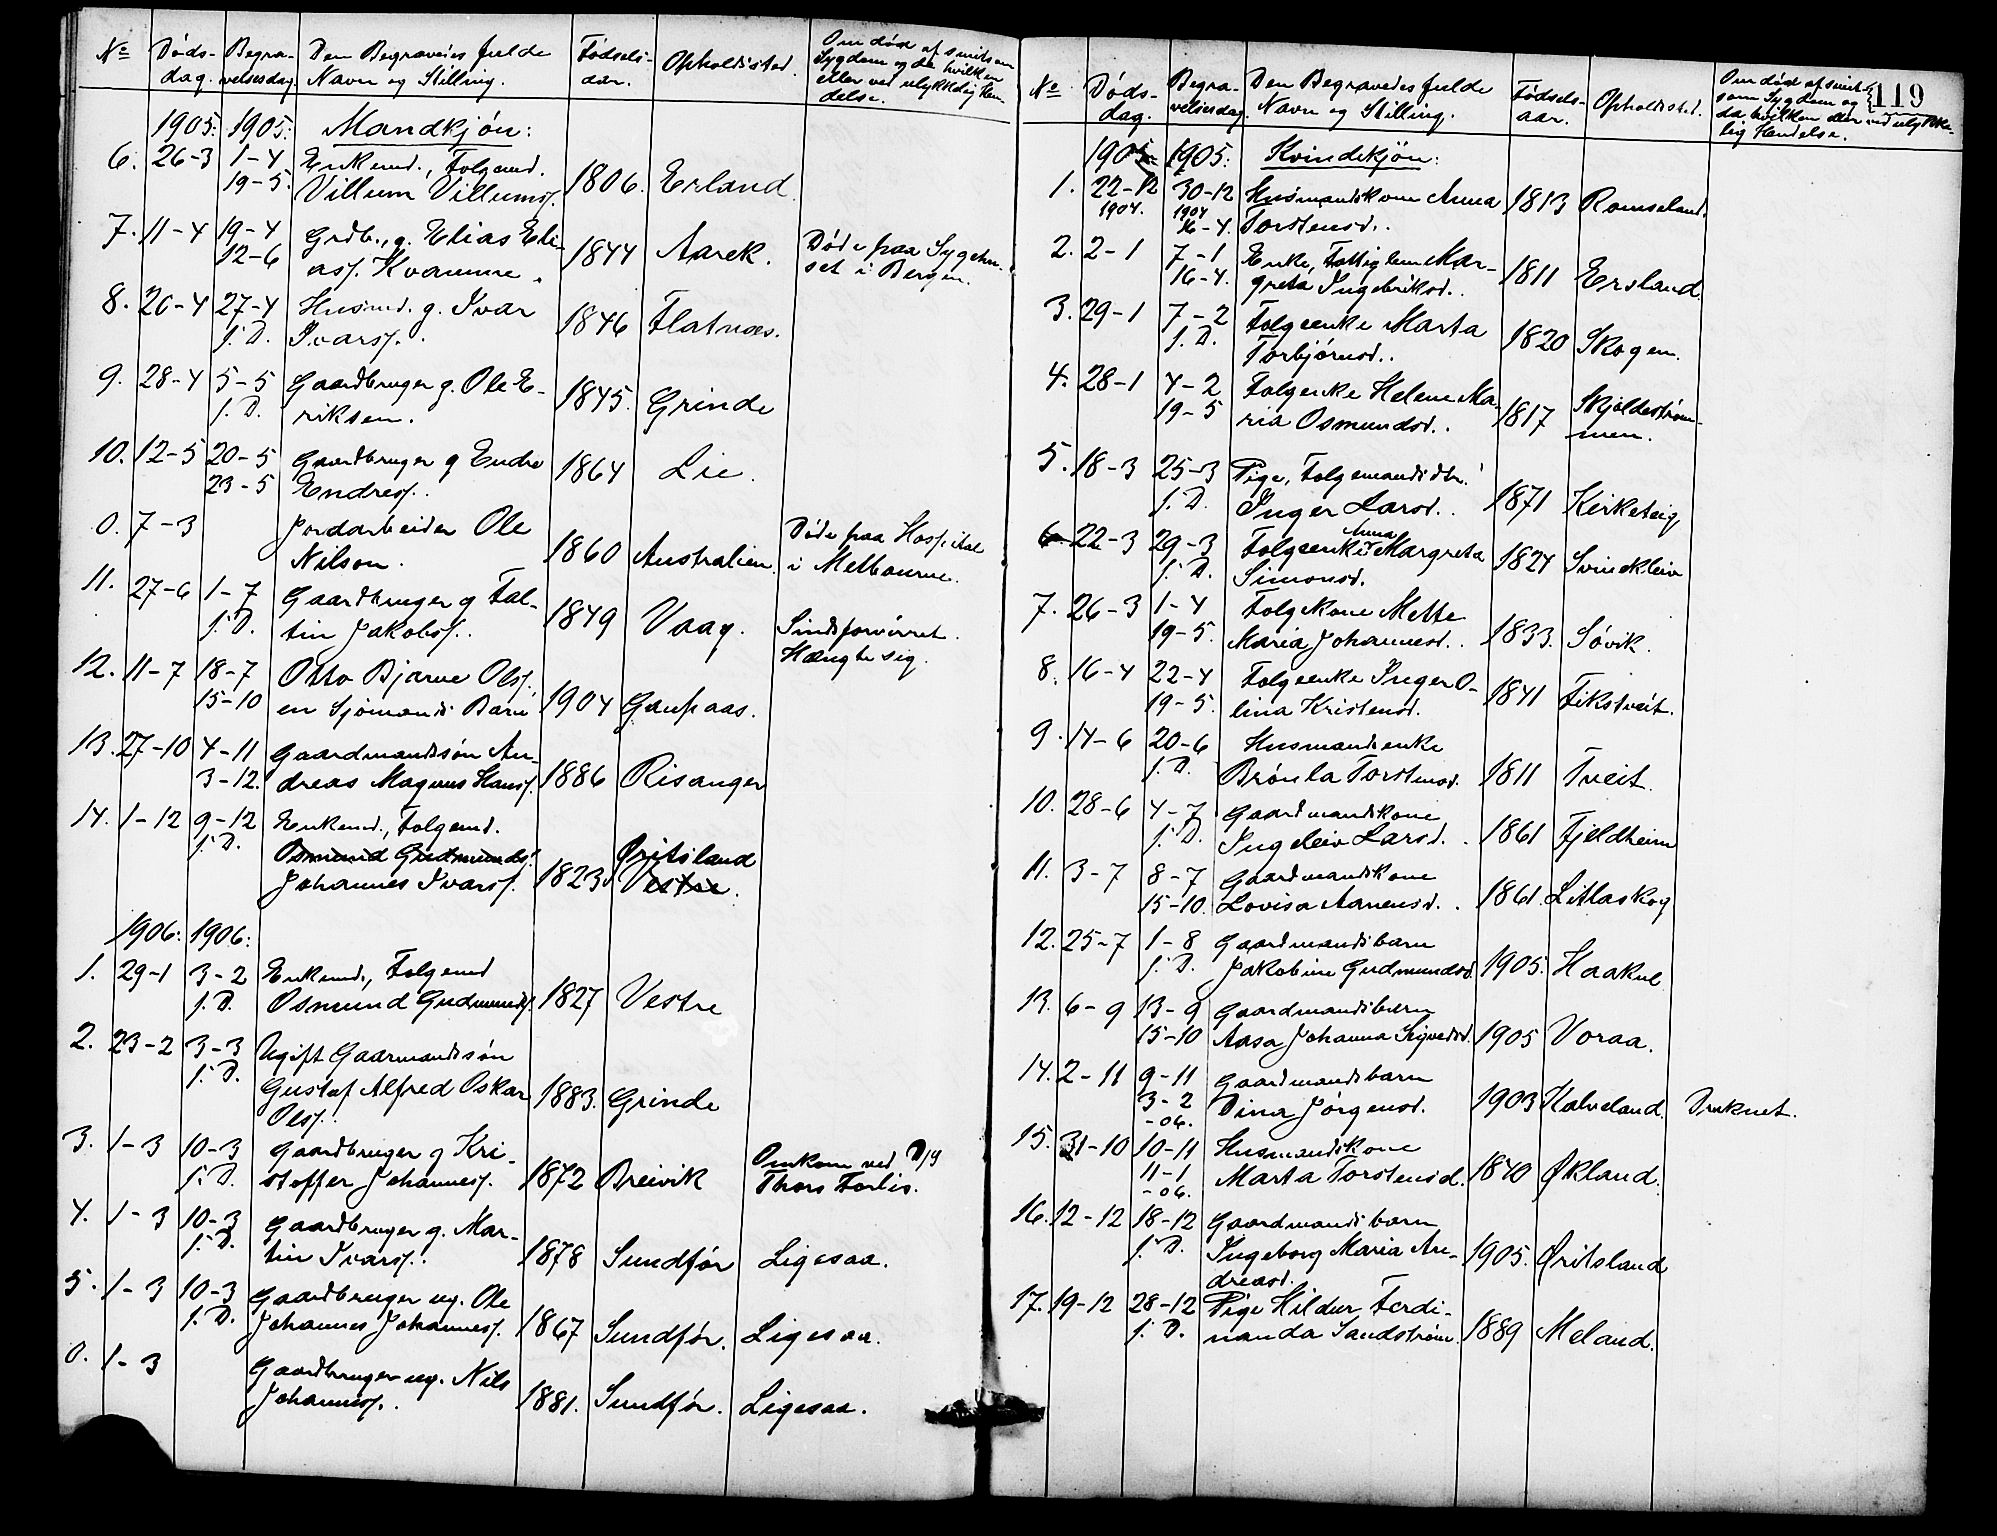 No | Døds- | Begra- | Den Begravedes fulde | Fødsels- | Opholdssted. | Om død af smitsom
dag. | velsesdag. | Navn og Stilling. | aar. | Sygdom og da hvilken
eller ved ulykkelig Hæn-
delse.
1905: | 1905: | Mandkjøn:
6. | 26-3 | 1-4 | Enkemd., Folgemd.
19-5. | Villum Villums. | 1806. | Erland
7. | 11-4 | 19-4 | Grdb., g. Elias Eli- | Døde paa Sygehu-
12-6 | ass. Kvamme. | 1844 | Aarek. | set i Bergen.
8. | 26-4 | 27-4 | Husmd. g. Ivar
s. D. | Ivars. | 1846 | Flatnæs.
9. | 28-4 | 5-5 | Gaardbruger g. Ole E-
s. D. | riksen. | 1845. | Grinde
10. | 12-5 | 20-5 | Gaardbruger g Endre | 1864 | Lie.
23-5 | Endres.
0. | 7-3 | Jordarbeider Ole | Døde paa Hospital
Nilson. | 1860 | Australien. | i Melbourne.
11. | 27-6 | 1-7 | Gaardbruger g Fal-
s. D. | tin Jakobs. | 1849 | Vaag. | Sindsforvirret.
Hængte sig.
12. | 11-7 | 18-7 | Otto Bjarne Ols.,
15-10 | en Sjømands Barn | 1904 | Gaupaas.
13. | 27-10 | 4-11 | Gaardmandssøn An-
3-12. | dreas Magnus Hans. | 1886 | Risanger
14. | 1-12 | 9-12 | Enkemd., Folgemd.
s. D. | Osmund Gudmunds. | Øritsland
Johannes Ivars. | 1823 | Vestre.
1906: | 1906:
1. | 29-1 | 3-2 | Enkemd., Folgemd
s. D. | Osmund Gudmunds. | 1827 | Vestre
2. | 23-2 | 3-3 | Ugift Gaarmandssøn
s. D. | Gustaf Alfred Oskar | 1883. | Grinde
Ols.
3. | 1-3 | 10-3 | Gaardbruger g Kri- | Omkom ved D/S
s. D. | stoffer Johanness. | 1872 | Breivik | Thors Forlis.
4. | 1-3 | 10-3 | Gaardbruger g. Mar-
s. D. | tin Ivars. | 1878 | Sundfør | Ligesaa.
5. | 1-3 | 10-3 | Gaardbruger ug. Ole
s. D. | Johannes Johanness. | 1867 | Sundfør. | Ligesaa.
0. | 1-3 | Gaardbruger ug. Nils
Johanness. | 1881. | Sundfør. | Ligesaa.
119
No | Døds- | Begra- | Den Begravedes fulde | Fødsels- | Opholdssted. | Om død af smit-
dag. | velsesdag | Navn og Stilling. | aar. | som Sygdom og
da hvilken eller ved ulykke-
lig Hændelse.
1905 | 1905: | Kvindekjøn:
1. | 22-12 | 30-12 | Husmandskone Anna | 1813 | Romseland.
1904. | 1904 | Torstensd.
16-4.
2. | 2-1 | 7-1 | Enke, Fattiglem Mar-
16-4. | greta Ingebriksd. | 1811 | Ersland.
3. | 29-1 | 7-2 | Folgeenke Marta
s. D. | Torbjørnsd. | 1820 | Skogen.
4. | 28-1 | 4-2 | Folgenke Helene Ma-
19-5 | ria Osmundsd. | 1817 | Skjoldestrøm-
men.
5. | 18-3 | 25-3 | Pige, Folgemandsdtr.
s. D. | Inger Larsd. | 1871 | Kirketeig
Anna
6. | 22-3 | 29-3 | Folgeenke Margreta | 1824 | Svinekleiv
s. D. | Simonsd.
7. | 26-3 | 1-4 | Folgekone Mette
19-5. | Maria Johannesd. | 1833. | Søvik.
8. | 16-4 | 22-4 | Folgeenke Inger O-
19-5. | lina Kristensd. | 1841 | Fikstveit.
9. | 14-6 | 20-6 | Husmandsenke
s. D. | Brønla Torstensd. | 1811 | Tveit.
10. | 28-6 | 4-7 | Gaardmandskone
s. D. | Ingeleiv Larsd. | 1861 | Fjeldheim
11. | 3-7 | 8-7 | Gaardmandskone
15-10. | Lovisa Aanensd. | 1861. | Litlaskog
12. | 25-7 | 1-8 | Gaardmandsbarn
s. D. | Jakobine Gudmundsd. | 1905. | Haakul
13. | 6-9 | 13-9 | Gaardmandsbarn
15-10 | Aasa Johanna Sigvedsd. | 1905 | Voraa.
14. | 2-11 | 9-11 | Gaardmandsbarn
3-2 | Dina Jørgensd. | 1903 | Halveland. | Druknet.
-06.
15. | 31-10 | 10-11 | Husmandskone
11-1 | Marta Torstensd. | 1840 | Økland.
-06.
16. | 12-12 | 18-12 | Gaardmandsbarn
s. D. | Ingeborg Maria An- | 1905. | Øritsland
dreasd.
17. | 19-12 | 28-12 | Pige Hildur Ferdi-
s. D. | nanda Sandstrøm. | 1889 | Meland.